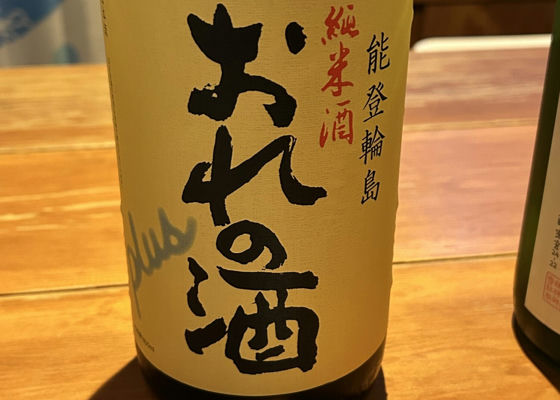 能登輪島
純米酒
おれの酒
plus